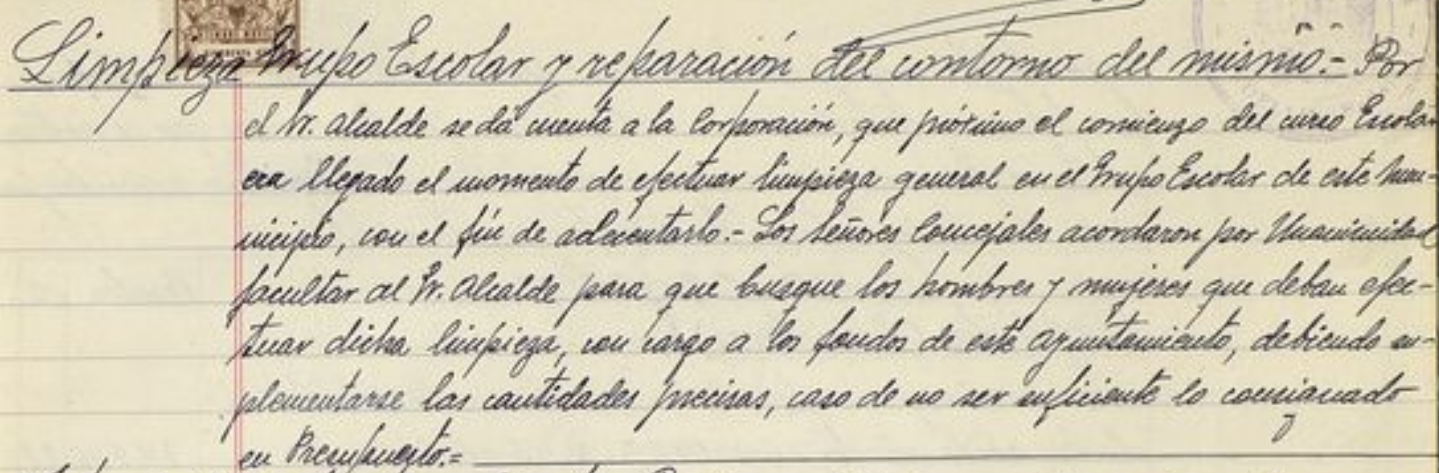 Limpieza Grupo Escolar y reparación del contorno del mismo.- Por
el Sr. Alcalde se dá cuenta a la Corporación, que próximo el comienzo del curso Escolar
era llegado el momento de efectuar limpieza general en el Grupo Escolar de este Mu-
nicipio, con el fín de adecentarlo.- Los Señores Concejales acordaron por Unanimidad
facultar al Sr. Alcalde para que busque los hombres y mujeres que deban efec-
tuar dicha limpieza, con cargo a los fondos de este Ayuntamiento, debiendo su-
plementarse las cantidades precisas, caso de no ser suficiente lo consignado
en Presupuesto.=